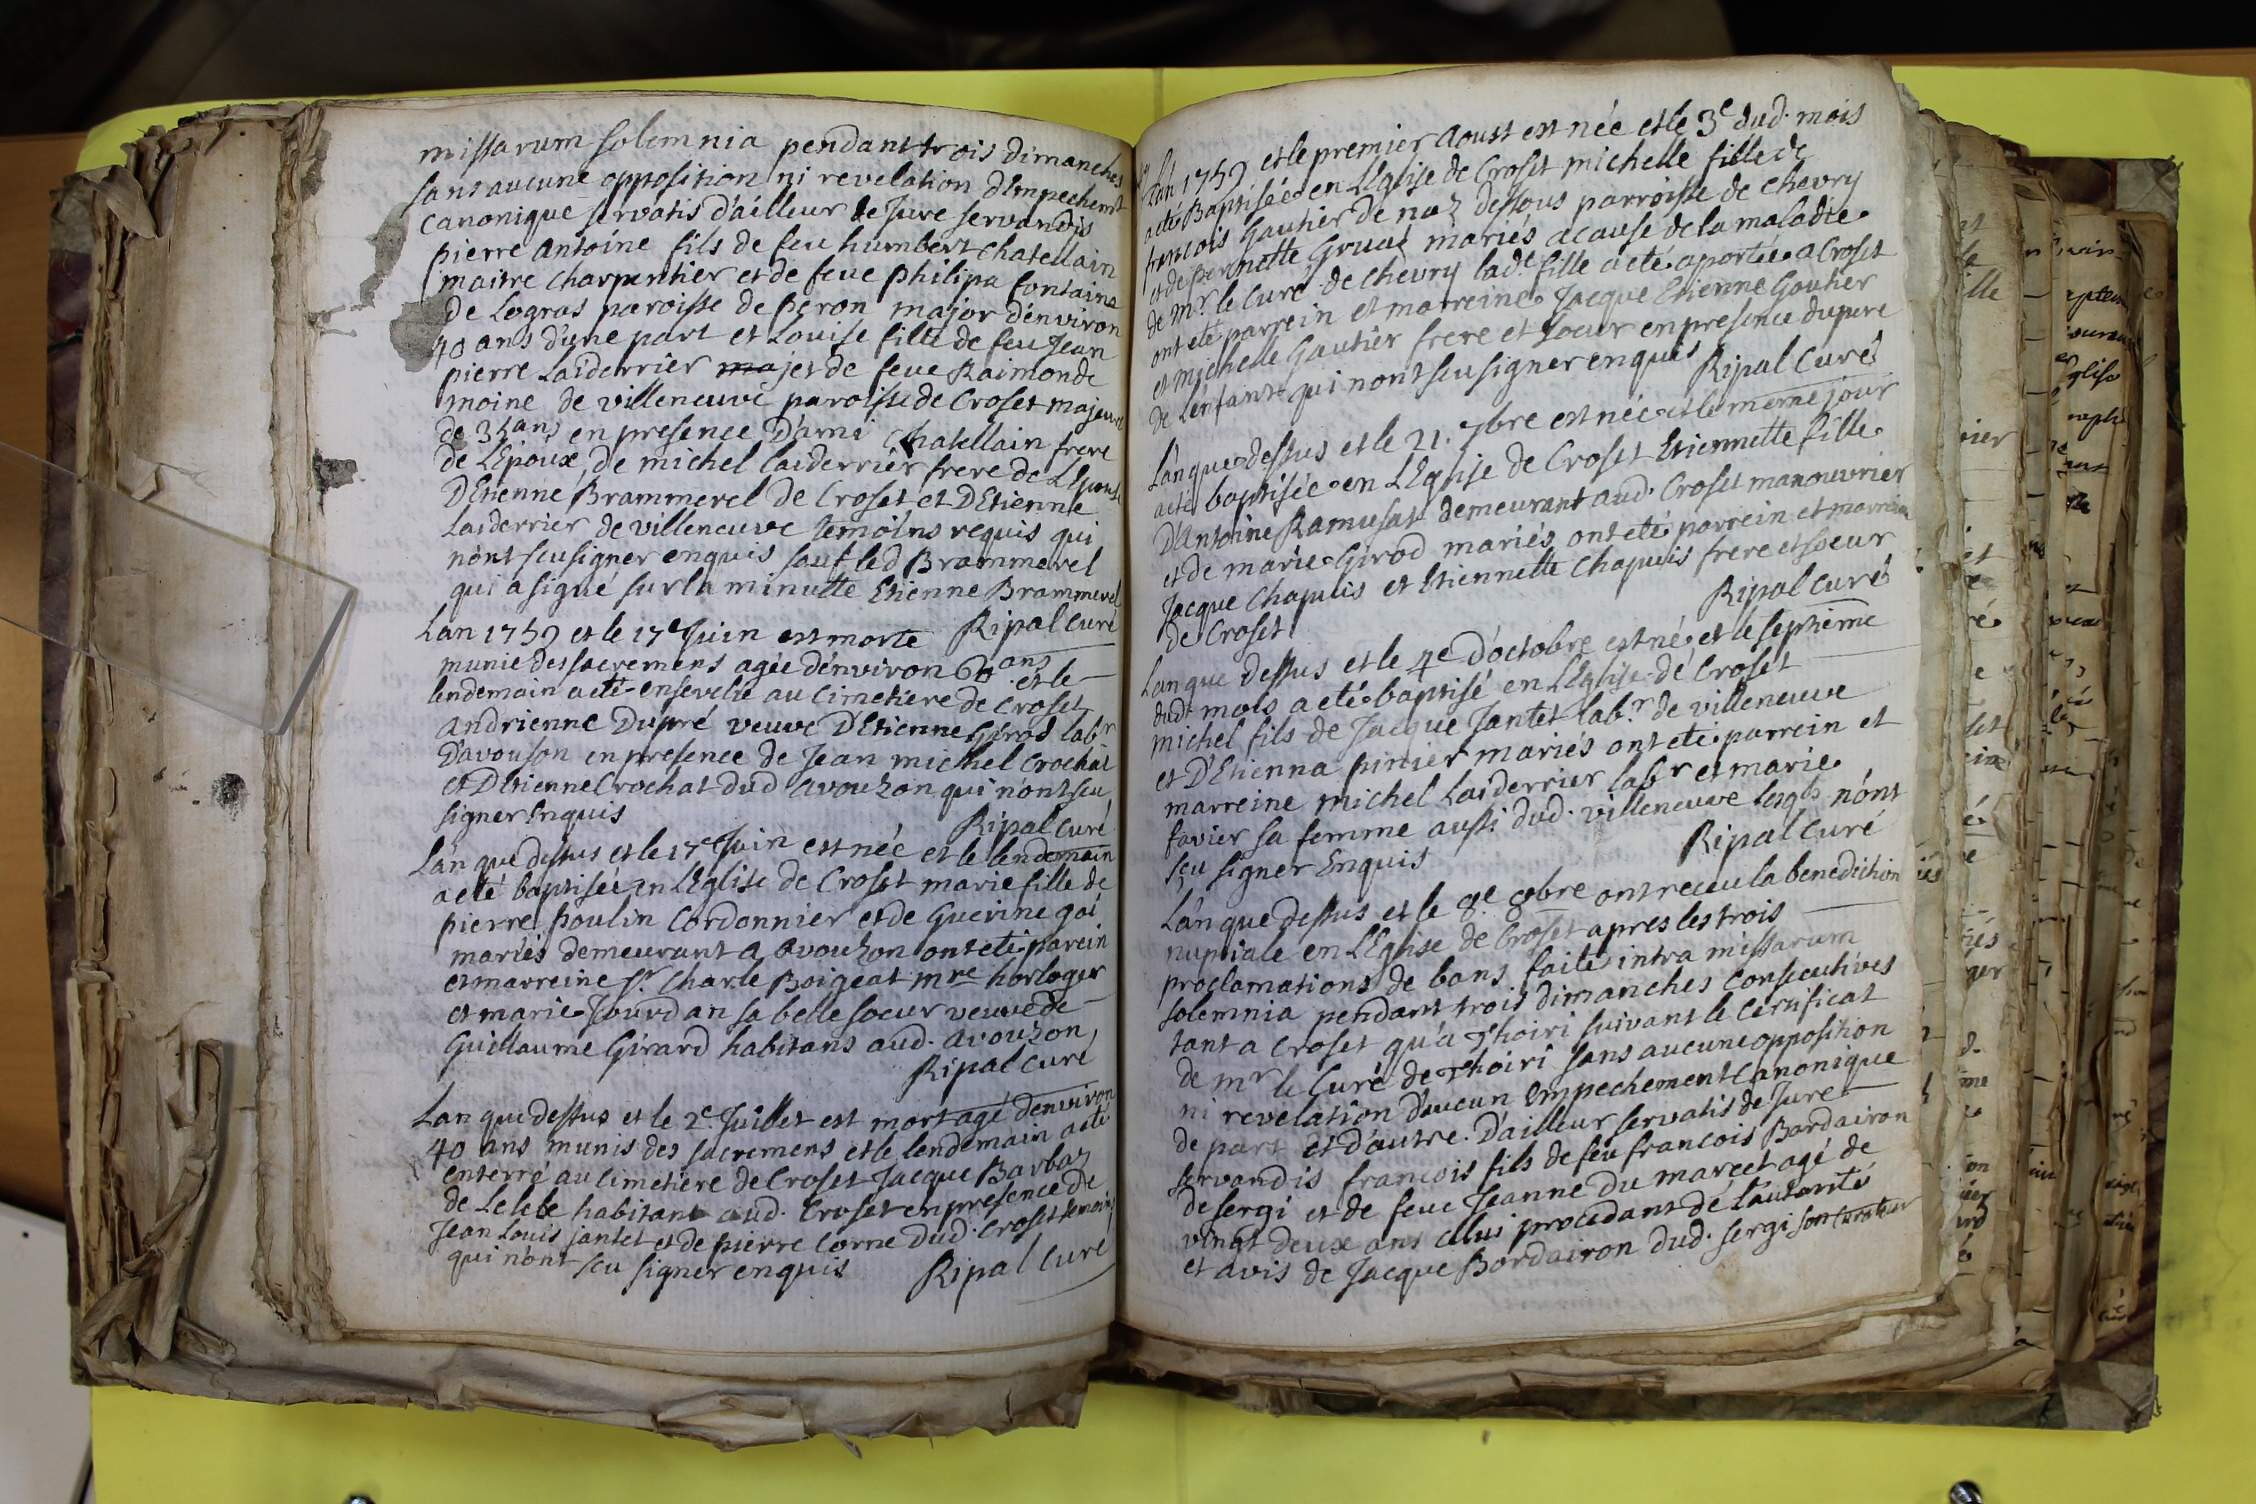 missarum solemnia pendant trois dimanches
sans aucune opposition ni revelation d'Empechemt
canonique servatis d'ailleur de Jure servandis
pierre Antoine fils de feu humbert Chatellain
maitre charpentier et de feue philipa fontaine
de Logras paroisse de peron major d'environ
40 ans d'une part et Louise fille de feu Jean
pierre Laiderrier majet de feue Raimonde
moine de villeneuve paroisse de Croset majeure
de 35 ans en presence D'ami Chatellain frere
de L'Epoux, de michel laiderrier frere de L'Epouse
D'Etienne Brammerel de Croset et D'Etienne
Laiderrier de villeneuve temoins requis qui
n'ont seu signer enquis sauf led Brammerel
qui a signé sur la minutte Etienne Brammerel
Ripal curé
Lan 1759 et le 17e Juin est morte
munie des sacremens agée d'environ 60 ans et le
lendemain a eté ensevelie au Cimetiere de Croset
andrienne Dupré veuve D'Etienne Girod labr
D'avouson en presence de Jean michel Crochat
et D'Etienne Crochat dud avouzon qui n'ont seu
signer Enquis
Ripal curé
Lan que dessus et le 17e Juin est née et le lendemain
a eté baptisée en L'Eglise de Croset marie fille de
pierre poulin Cordonnier et de Guerine gai
mariés demeurant a avouzon ont eté parein
et marreine Sr. Charle Boigeat mre horloger
et marie Jourdan sa belle soeur veuve de
Guillaume Girard habitans aud. avouzon
Ripal curé
Lan que dessus et le 2e Juillet est mort agé d'environ
40 ans munis des sacremens et le lendemain a eté
enterré au cimetiere de Croset Jacque Barbaz
de Lelele habitant aud. Croset en presence de
Jean Louis jantet et de pierre Corne dud. Croset temoins
qui n'ont seu signer enquis Ripal curé
Lan 1759 et le premier Aoust est née et le 3e dud. mois
a eté Baptisée en L'Eglise de Croset michelle fille de
francois Gautier de naz dessous parroisse de chevry
et de pernette Gruaz mariés a cause de la maladie
de mr. le Curé de chevry lade. fille a eté aportée a Croset
ont eté parrein et marreine Jacque Etienne Gautier
et michelle Gautier frere et soeur en presence du pere
de L'enfant qui n'ont seu signer enquis Ripal Curé
Lan que dessus et le 21. 7bre est née et le meme jour
a eté baptisée en L'Eglise de Croset Etiennette fille
D'Antoine Ramusat demeurant aud. Croset manouvrier
et de marie Girod mariés ont eté parrein et marreine
Jacque Chapuis et Etiennette Chapuis frere et soeur
de Croset
Ripal Curé
Lan que dessus et le 4e D'octobre est né et le septième
dud. mois a eté baptisé en L'Eglise de Croset
michel fils de Jacque Jantet labr. de villeneuve
et D'Etienna pinier mariés ont eté parrein et
marreine michel Laiderrier labr et marie
favier sa femme aussi dud. villeneuve lesqls n'ont
seu signer Enquis
Ripal Curé
Lan que dessus et le 8e 8bre ont receu la benediction
nuptiale en L'Eglise de Croset apres les trois
proclamations de bans faites intra missarum
solemnia pendant trois dimanches consecutives
tant a Croset qu'a Thoiri suivant le certificat
de mr le Curé de Thoiri sans aucune opposition
ni revelation d'aucun Empechement canonique
de part et d'autre. D'ailleur servatis de Jure
servandis francois fils de feu francois Bordairon
de sergi et de feue Jeanne Du marcet agé de
vingt deux ans celui procedant de l'autorité
et avis de Jacque Bordairon dud. sergi son curateur